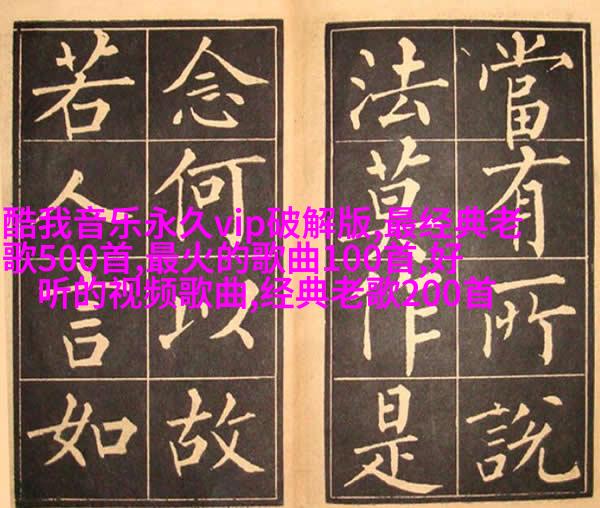 當有所說
法莫作是
念何以故
若人言如
酷我音乐永久vip破解版,最经典老
歌500首,最火的歌曲100首,好
听的视频歌曲,经典老歌200首